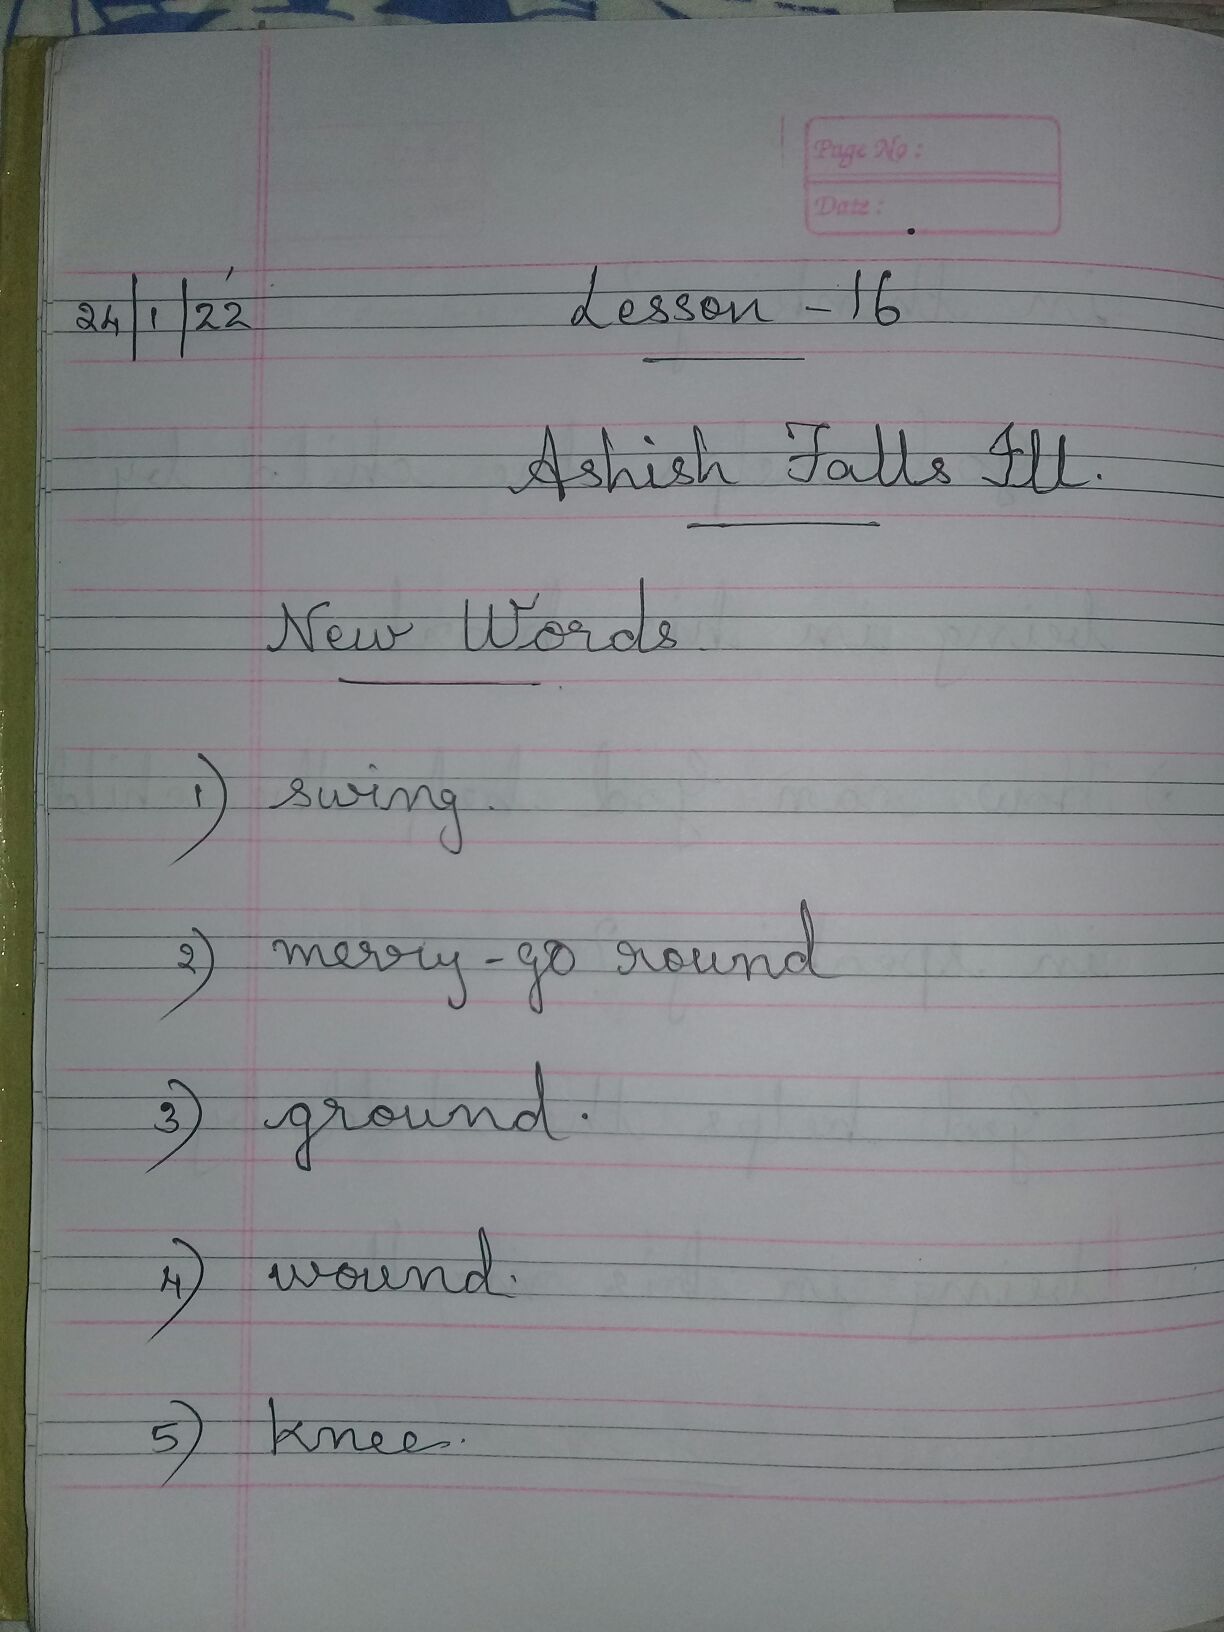 Page No :
Date :
24|1|22
Lesson - 16
Ashish Falls Ill.
New Words
1) swing.
2) merry-go round
3) ground.
4) wound.
5) knee.